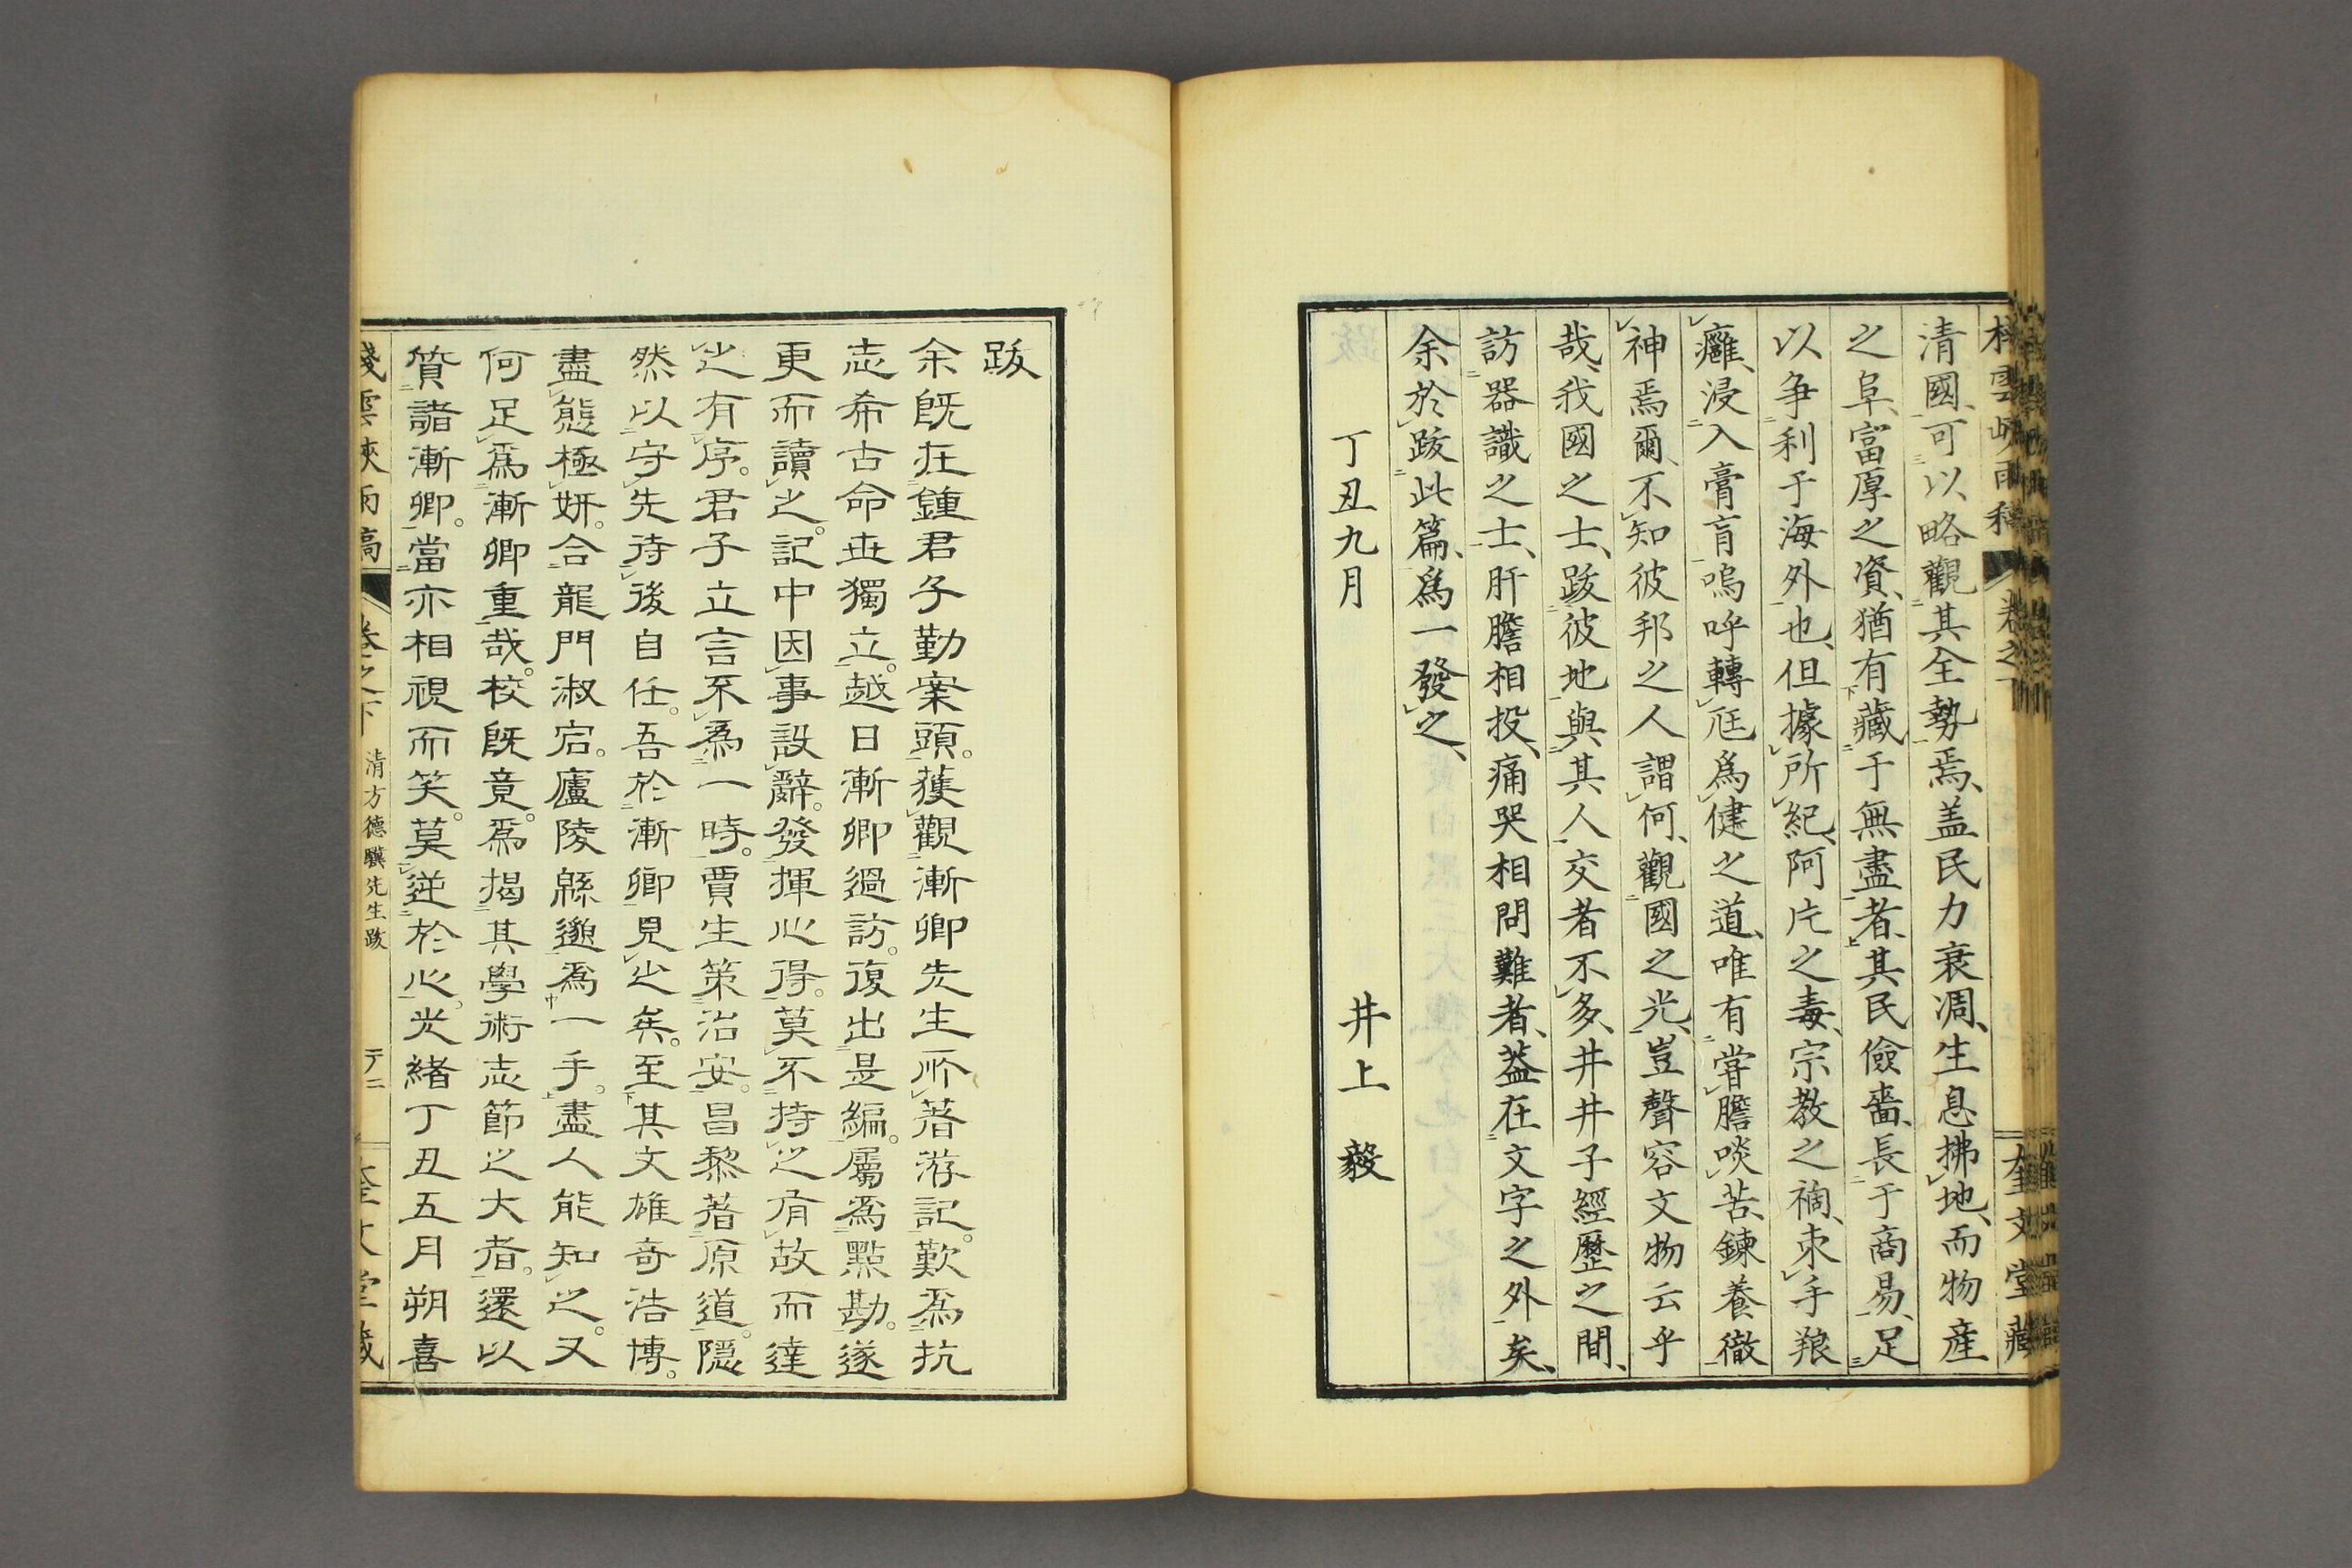 棧雲峽雨稿 卷之下 奎文堂藏
清國、可以略觀其全勢焉、蓋民力衰凋、生息拂地、而物產
之阜、富厚之資、猶有藏于無盡者、其民儉嗇、長于商易、足
以爭利于海外也、但據所紀、阿片之毒、宗教之禍、朿手羸
癰、浸入膏肓、嗚呼轉尫爲健之道、唯有嘗膽啖苦、鍊養徹
神焉爾、不知彼邦之人謂何、觀國之光、豈聲容文物云乎
哉、我國之士、跋彼地、與其人交者不多、井井子經歷之間、
訪器識之士、肝膽相投、痛哭相問難者、蓋在文字之外矣、
余於跋此篇、爲一發之、
丁丑九月 井上毅
跋
余旣在鍾君子勤案頭。獲觀漸卿先生所著游記。歎爲抗
志希古命世獨立。越日漸卿過訪。復出是編。屬爲點勘。遂
更而讀之。記中因事設辭。發揮心得。莫不持之有故而達
之有序。君子立言不爲一時。賈生策治安。昌黎著原道。隱
然以守先待後自任。吾於漸卿見之矣。至其文雄奇浩博。
盡態極妍。合龍門淑宕。廬陵緜邈爲一手。盡人能知之。又
何足爲漸卿重哉。校旣竟。爲揭其學術志節之大者。還以
質諸漸卿。當亦相視而笑。莫逆於心。光緒丁丑五月朔喜
棧雲峽雨稿 卷之下 清方德驥先生跋 奎文堂藏